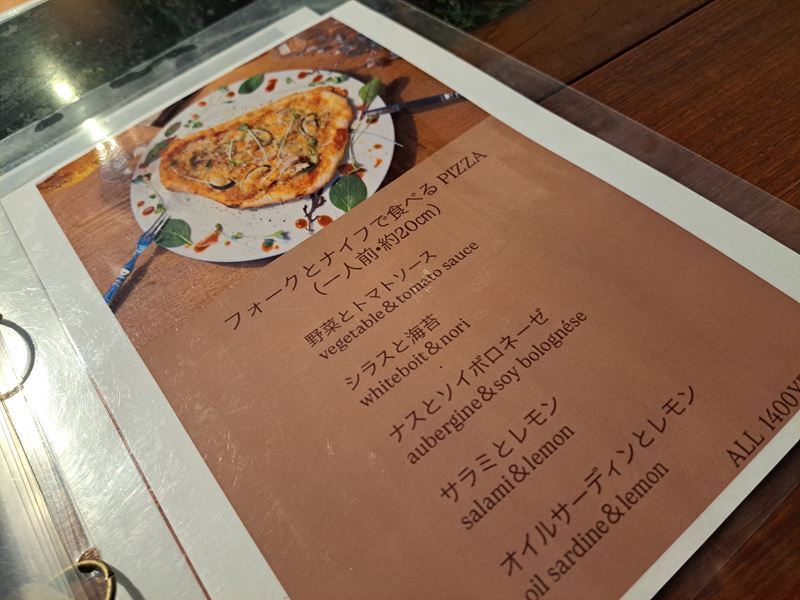 フォークとナイフで食べる PIZZA
(一人前・約20cm)
野菜とトマトソース
vegetable & tomato sauce
シラスと海苔
whiteboit & nori
ナスとソイボロネーゼ
aubergine & soy bolognése
サラミとレモン
salami & lemon
オイルサーディンとレモン
oil sardine & lemon
ALL 1400Y